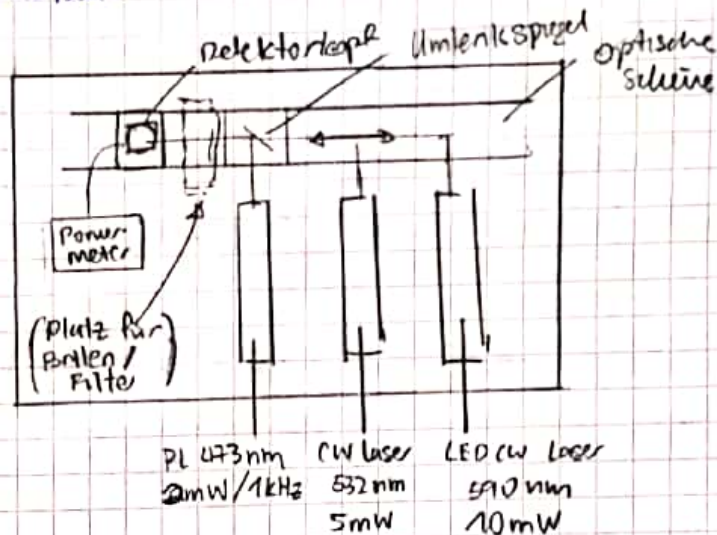 Detektorkopf
Umlenkspiegel
Optische
Schiene
Power-
meter
(Platz für
Brillen /
Filter)
PL 473nm
2mW/1kHz
CW Laser
532nm
5mW
LED CW Laser
590nm
10mW